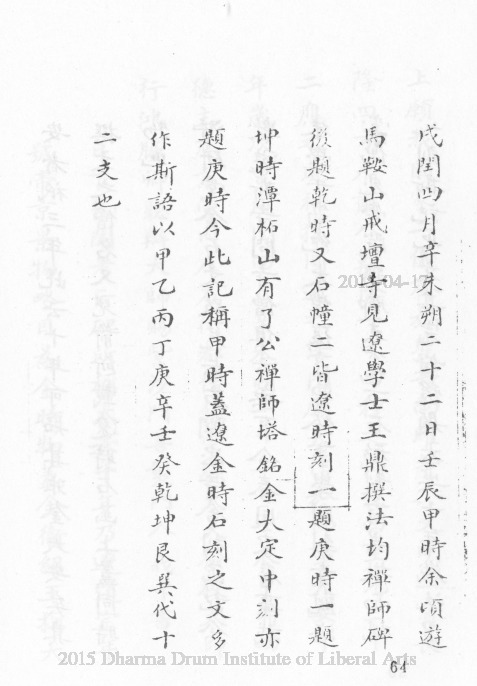 戌閏四月辛未朔二十二日壬辰甲時余頃遊
馬鞍山戒壇寺見遼學士王鼎撰法均禪師碑
後題乾時又石幢二皆遼時刻一題庚時一題
坤時潭柘山有了公禪師塔銘金大定中刻亦
題庚時今此記稱甲時蓋遼金時石刻之文多
作斯語以甲乙丙丁庚辛壬癸乾坤艮巽代十
二支也
2015-04-17
64
2015 Dharma Drum Institute of Liberal Arts